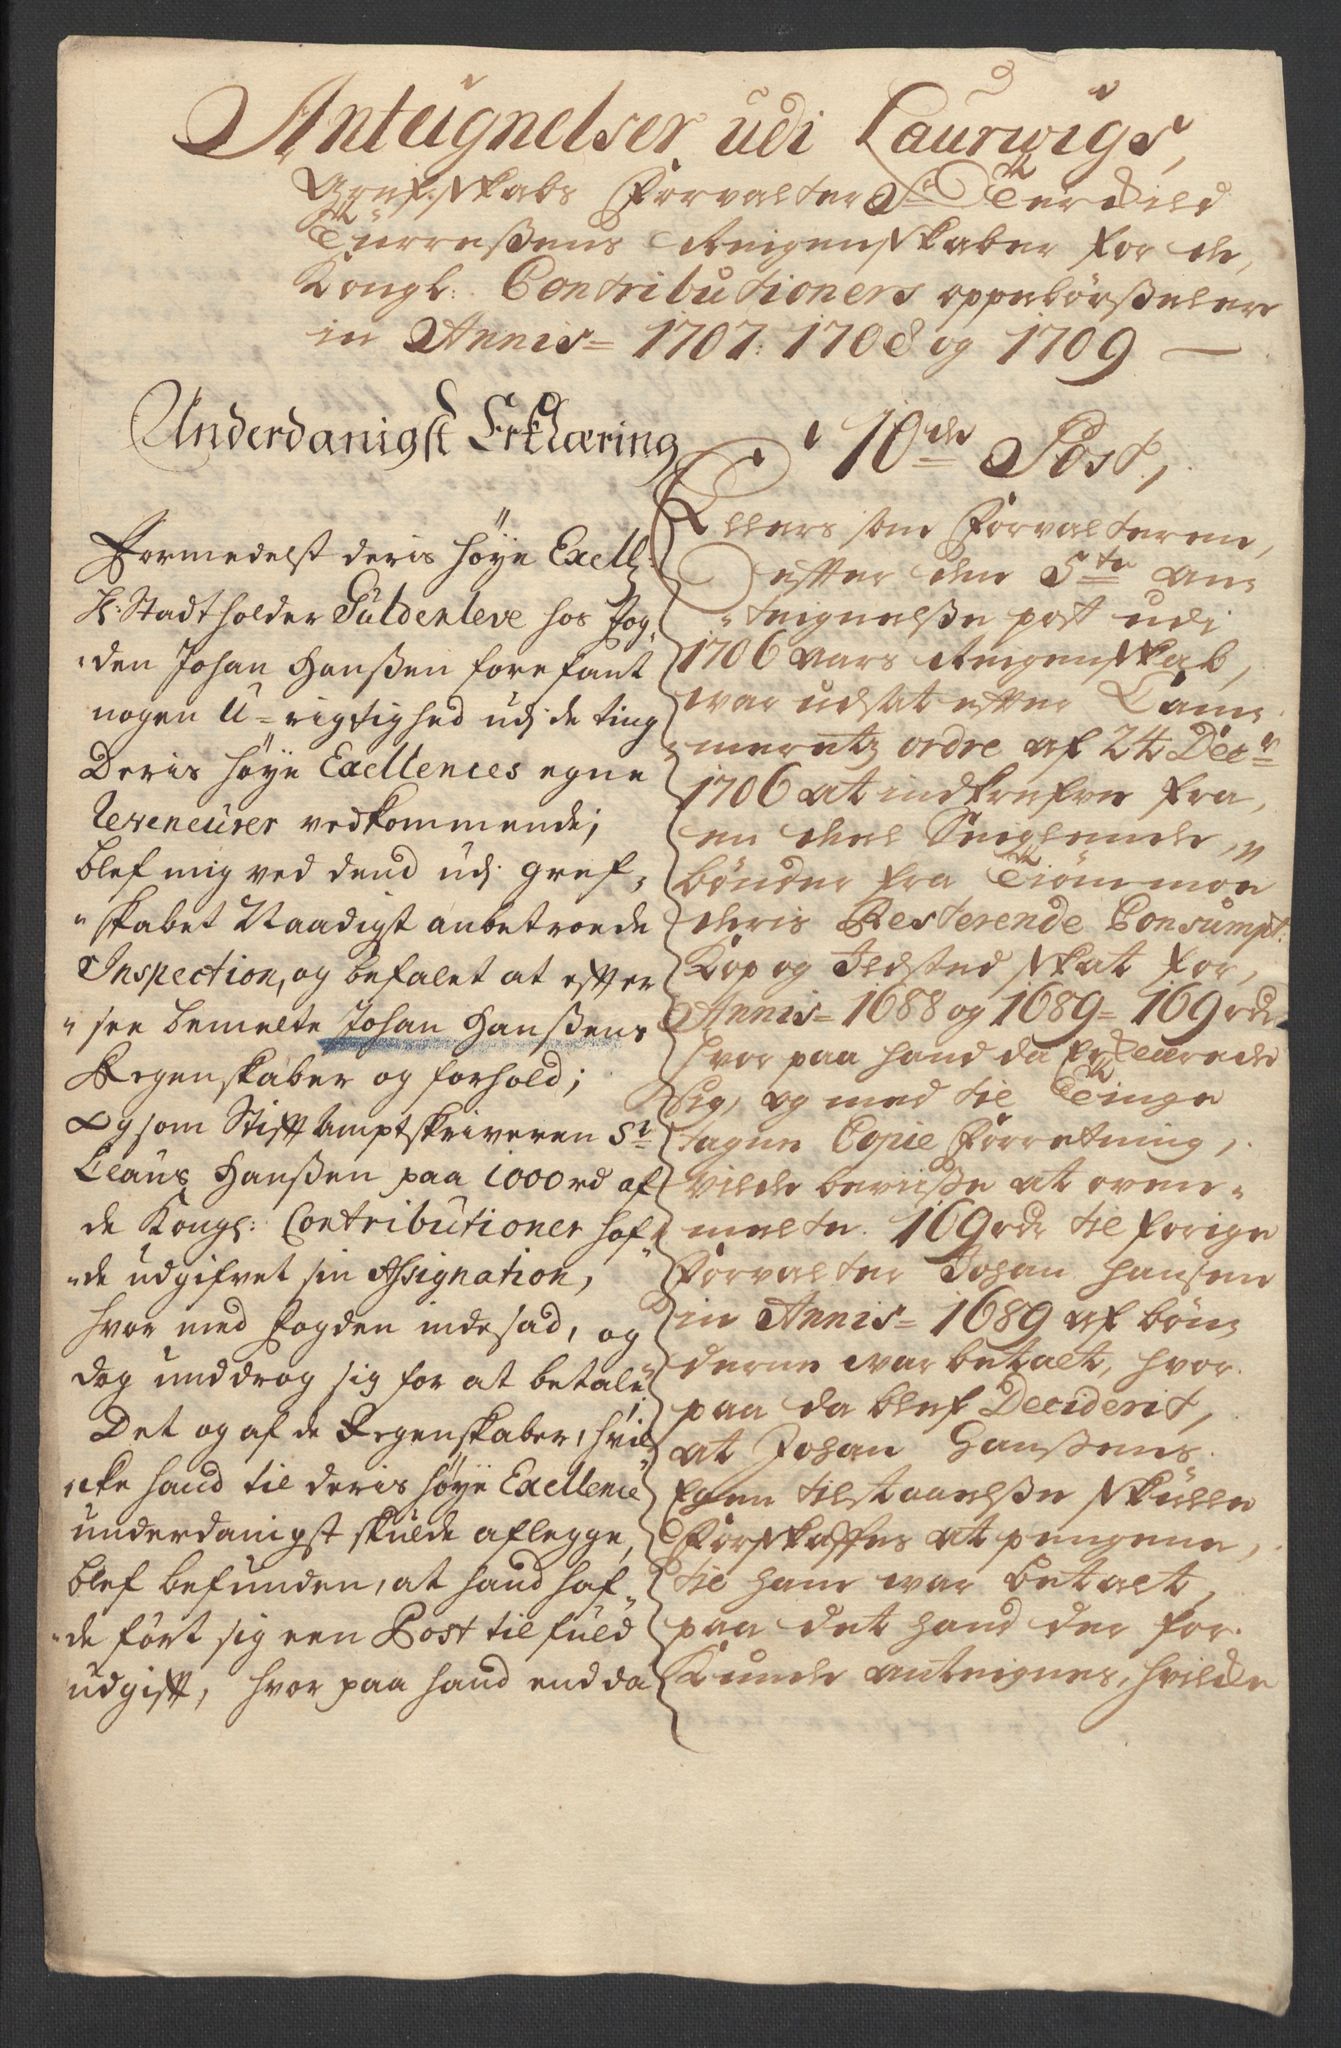 Anteignelser udi Laurwigs,
Grefskabs Forvalter Sr Terkild
Türreßens Reigenskaber for de,
Kongl: Contributioners oppebörßeler
in Annis= 1707: 1708 og 1709 —
Underdanigst Erklæring
Formedelst deris höye Excell:
H: Stadtholder Güldenleve hos Fog„
„den Johan Hanßen forefant
nogen U=rigtighed udj de ting
Deris höye Excellences egne
Reveneurer vedkommende;
blef mig ved dend udj gref„
„skabet Naadigst anbetroede
Inspection, og befalet at effter
„see bemelte Johan Hanßens
Regenskaber og forhold;
Og som Stifft Amptskriveren Sr
Claus Hanßen paa 1000 rd af
de Kongl: Contributioner haf„
„de udgifvet sin Assignation,
hvor med Fogden indesad, og
dog unddrog sig for at betale;
Det og af de Regenskaber, hvil„
„cke hand til deris höye Excellence
underdanigst skulde aflegge,
blef befunden, at hand haf„
„de fört sig een Post til fuld
udgifft, hvor paa hand endda
10de Post,
Ellers som Forvalteren,
effter den 5te an„
„teignelße post udi
1706 aars Reigenskab,
war udsat effter Cam„
meretz ordre af 24 Decr
1706 at indkrefve fra,
en deel Seiglende,
bönder fra Tiömmöe
deris Resterende Consumpt:
Kop og Ildsted skat for,
Annis= 1688 og 1689= 169 rdr
hvor paa hand da Erklærede
sig, og med til Tinge
tagne Copie Forretning,
vilde beviiße at oven„
melte 169 rdr til forige
Forvalter Johan Hansen
in Annis= 1689 af bön„
derne war betalt, hvor.
paa da blef Deciderit,
at Johan Hanßens
Egen tilstaaelße skulle
Forskaffes at pengene,
til ham war betalt,
paa det hand der for.
Kunde anteignes, hvilcke